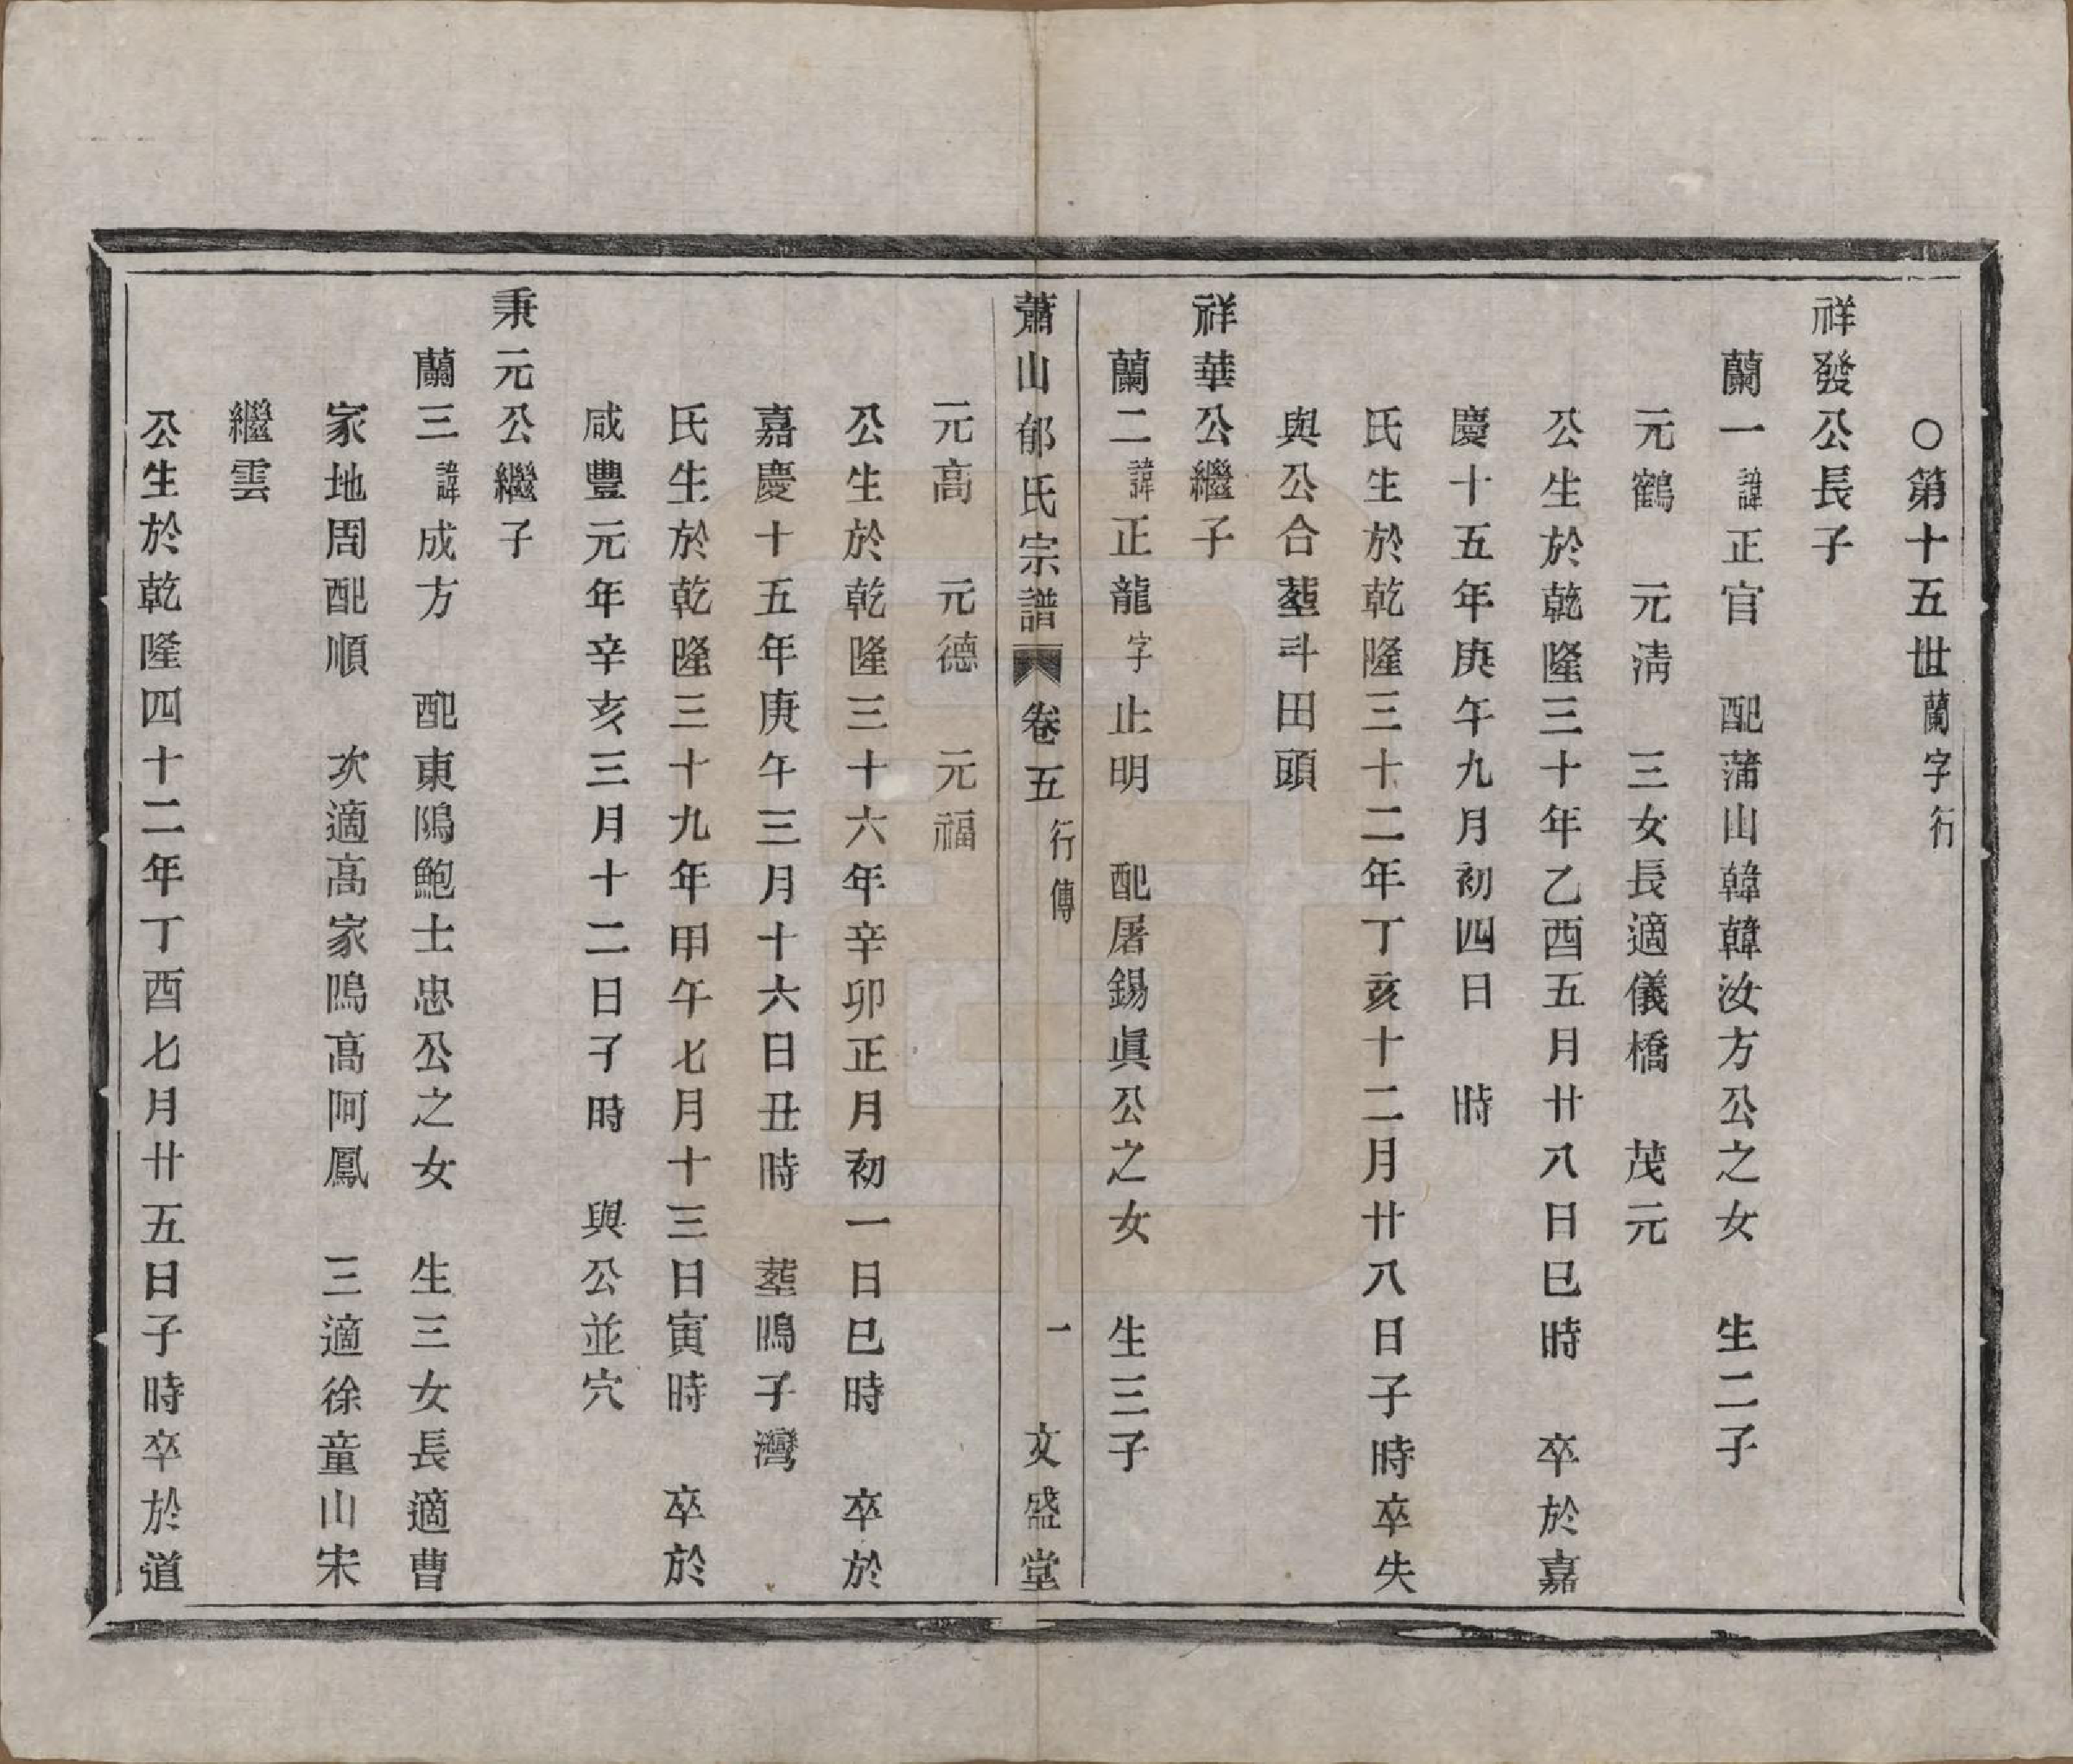 ○第十五世蘭字行
祥發公長子
蘭一諱正官　配蒲山韓韓汝方公之女　生二子
元鶴　元淸　三女長適儀橋　茂元
公生於乾隆三十年乙酉五月廿八日巳時　卒於嘉
慶十五年庚午九月初四日　時
氏生於乾隆三十二年丁亥十二月廿八日子時卒失
與公合塟斗田頭
祥華公繼子
蘭二諱正龍字止明　配屠錫眞公之女　生三子
蕭山郁氏宗譜　卷五　行傳　一　文盛堂
元高　元德　元福
公生於乾隆三十六年辛卯正月初一日巳時　卒於
嘉慶十五年庚午三月十六日丑時　塟鳴子灣
氏生於乾隆三十九年甲午七月十三日寅時　卒於
咸豐元年辛亥三月十二日子時　與公並穴
秉元公繼子
蘭三諱成方　配東隖鮑士忠公之女　生三女長適曹
家地周配順　次適高家隖高阿鳳　三適徐童山宋
繼雲
公生於乾隆四十二年丁酉七月廿五日子時卒於道